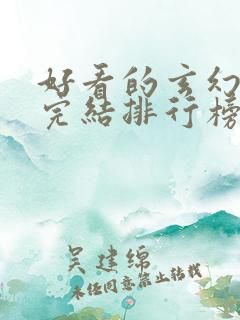 好看的玄幻
完结排行榜
吴建绵
未经同意禁止转载